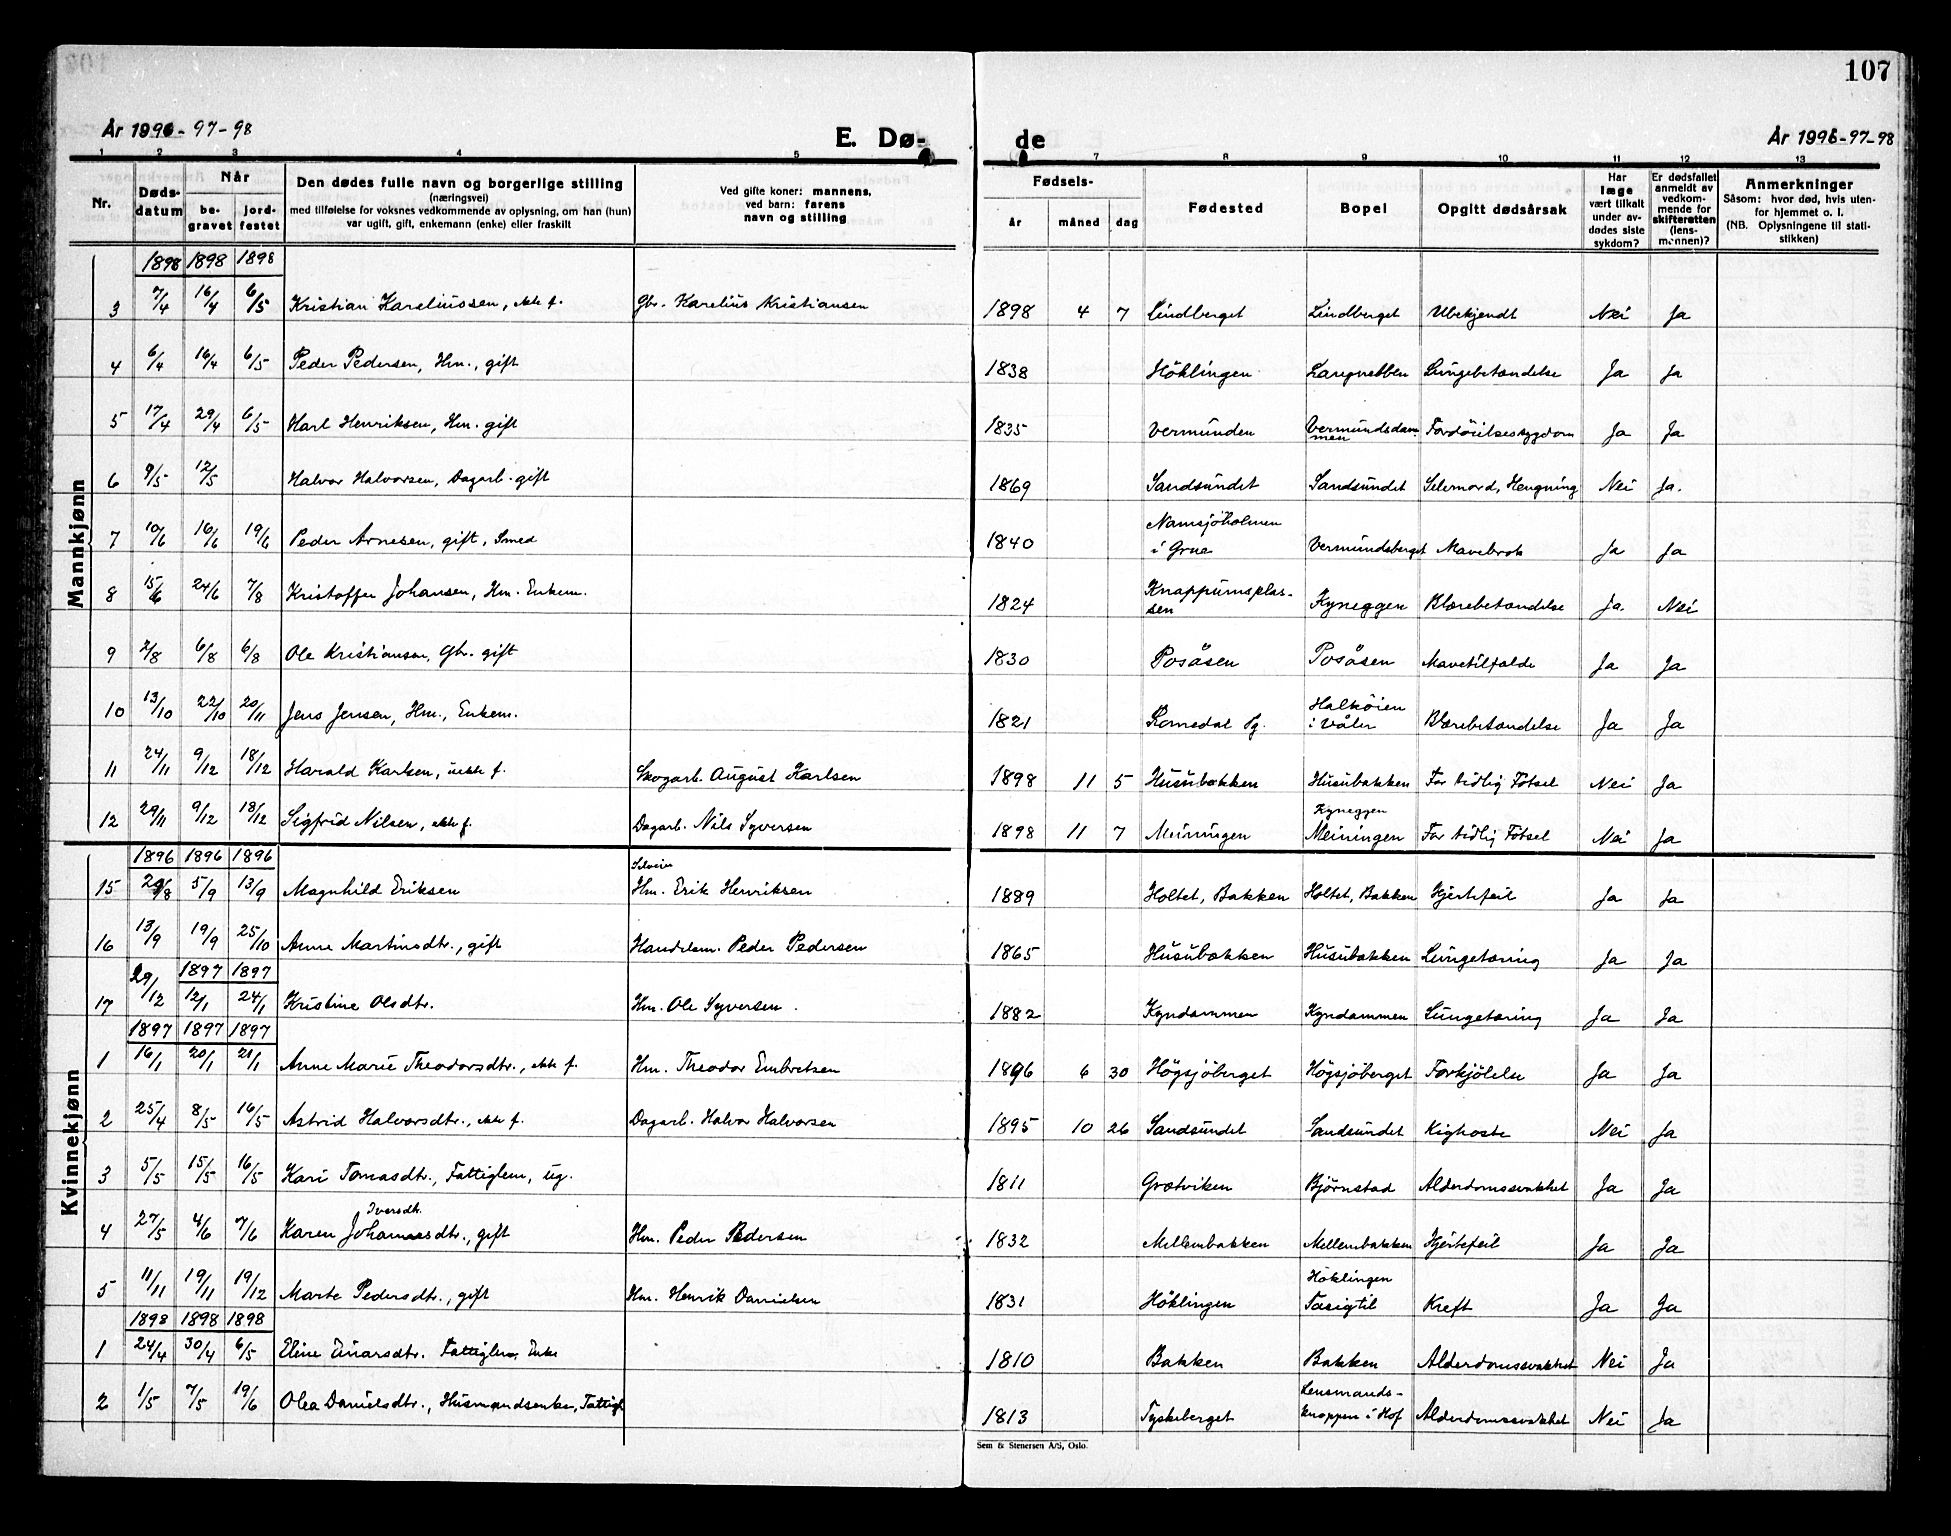 107
År 1996-97-98
E. Dø-
de
År 1996-97-98
1 2 3 4 5 7 8 9 10 11 12 13
Nr.
Døds-
datum
Når
be-
gravet
jord-
festet
Den dødes fulle navn og borgerlige stilling
(næringsvei)
med tilføielse for voksnes vedkommende av oplysning, om han (hun)
var ugift, gift, enkemann (enke) eller fraskilt
Ved gifte koner: mannens,
ved barn: farens
navn og stilling
Fødsels-
år måned dag
Fødested
Bopel
Opgitt dødsårsak
Har
læge
vært tilkalt
under av-
dødes siste
sykdom?
Er dødsfallet
anmeldt av
vedkom-
mende for
skifteretten
(lens-
mannen)?
Anmerkninger
Såsom: hvor død, hvis uten-
for hjemmet o. l.
(NB. Oplysningene til stati-
stikken)
Mannkjønn
1898 1898 1898
3 7/4 16/4 6/5 Kristian Kareliussen, ekte f. Gbr. Karelius Kristiansen 1898 4 7 Lindberget Lindberget Ubekjendt Nei Ja
4 6/4 16/4 6/5 Peder Pedersen, Hm., gift 1838 Höklingen Langnebben Lungebetændelse Ja Ja
5 17/4 29/4 6/5 Karl Henriksen, Hm. gift 1835 Vermunden Vermundsdam-
men Fordöielsessygdom Ja Ja
6 9/5 12/5 Halvor Halvorsen, Dagarb. gift 1869 Sandsundet Sandsundet Selvmord, Hengning Nei Ja.
7 10/6 16/6 19/6 Peder Arnesen, gift, Smed 1840 Namsjöholmen
i Grue Vermundsberget Mavebrok Ja Ja
8 15/6 24/6 7/8 Kristoffer Johansen, Hm. Enkem. 1824 Knappumsplas-
sen Kyneggen Blærebetændelse Ja. Nei
9 2/8 6/8 6/8 Ole Kristiansen, Gbr. gift 1830 Posåsen Posåsen Mavetilfælde Ja Ja
10 13/10 22/10 20/11 Jens Jensen, Hm., Enkem. 1821 Romedal Pg. Halköien
i Våler Blærebetændelse Ja Ja
11 24/11 9/12 18/12 Harald Karlsen, uekte f. Skogarb. August Karlsen 1898 11 5 Husubakken Husubakken For tidlig Fötsel Nei Ja
12 29/11 9/12 18/12 Sigfrid Nilsen, ekte f. Dagarb. Nils Syversen 1898 11 7 Meiningen Kyneggen
Meiningen For tidlig Fötsel Nei Ja
Kvinnekjønn
1896 1896 1896
Selveier
15 29/8 5/9 13/9 Magnhild Eriksen Hm. Erik Henriksen 1889 Holtet, Bakken Holtet, Bakken Hjertefeil Ja Ja
16 13/9 19/9 25/10 Anne Martinsdtr., gift Handelsm. Peder Pedersen 1865 Husubakken Husubakken Lungetæring Ja Ja
1897 1897
17 29/12 12/1 24/1 Kristine Olsdtr. Hm. Ole Syversen 1882 Kyndammen Kyndammen Lungetæring Ja Ja
1897 1897 1897
1 16/1 20/1 21/1 Anne Marie Theodorsdtr., ekte f. Hm. Theodor Embretsen 1896 6 30 Högsjöberget Högsjöberget Forkjölelse Ja Ja
2 25/4 8/5 16/5 Astrid Halvorsdtr., ekte f. Dagarb. Halvor Halvorsen 1895 10 26 Sandsundet Sandsundet Kighoste Nei Ja
3 5/5 15/5 16/5 Kari Tomasdtr., Fattiglem, ug. 1811 Grætviken Bjørnstad Alderdomssvakhet Ja Ja
Iversdtr.
4 27/5 4/6 7/6 Karen Johannesdtr., gift Hm. Peder Pedersen 1832 Mellembakken Mellembakken Hjertefeil Ja Ja
5 11/11 19/11 19/12 Marte Pedersdtr., gift Hm. Henrik Danielsen 1831 Höklingen Höklingen
Tasigtil Kreft Ja Ja
1898 1898 1898
1 24/4 30/4 6/5 Eline Einarsdtr. Fattiglem, Enke 1810 Bakken Bakken Alderdomssvakhet Nei Ja
2 1/5 7/5 19/6 Olea Danielsdtr., Husmandsenke, Fattigl. 1813 Tyskeberget Lensmands-
knappen i Hof Alderdomssvakhet Nei Ja
Sem & Stenersen A/S, Oslo.